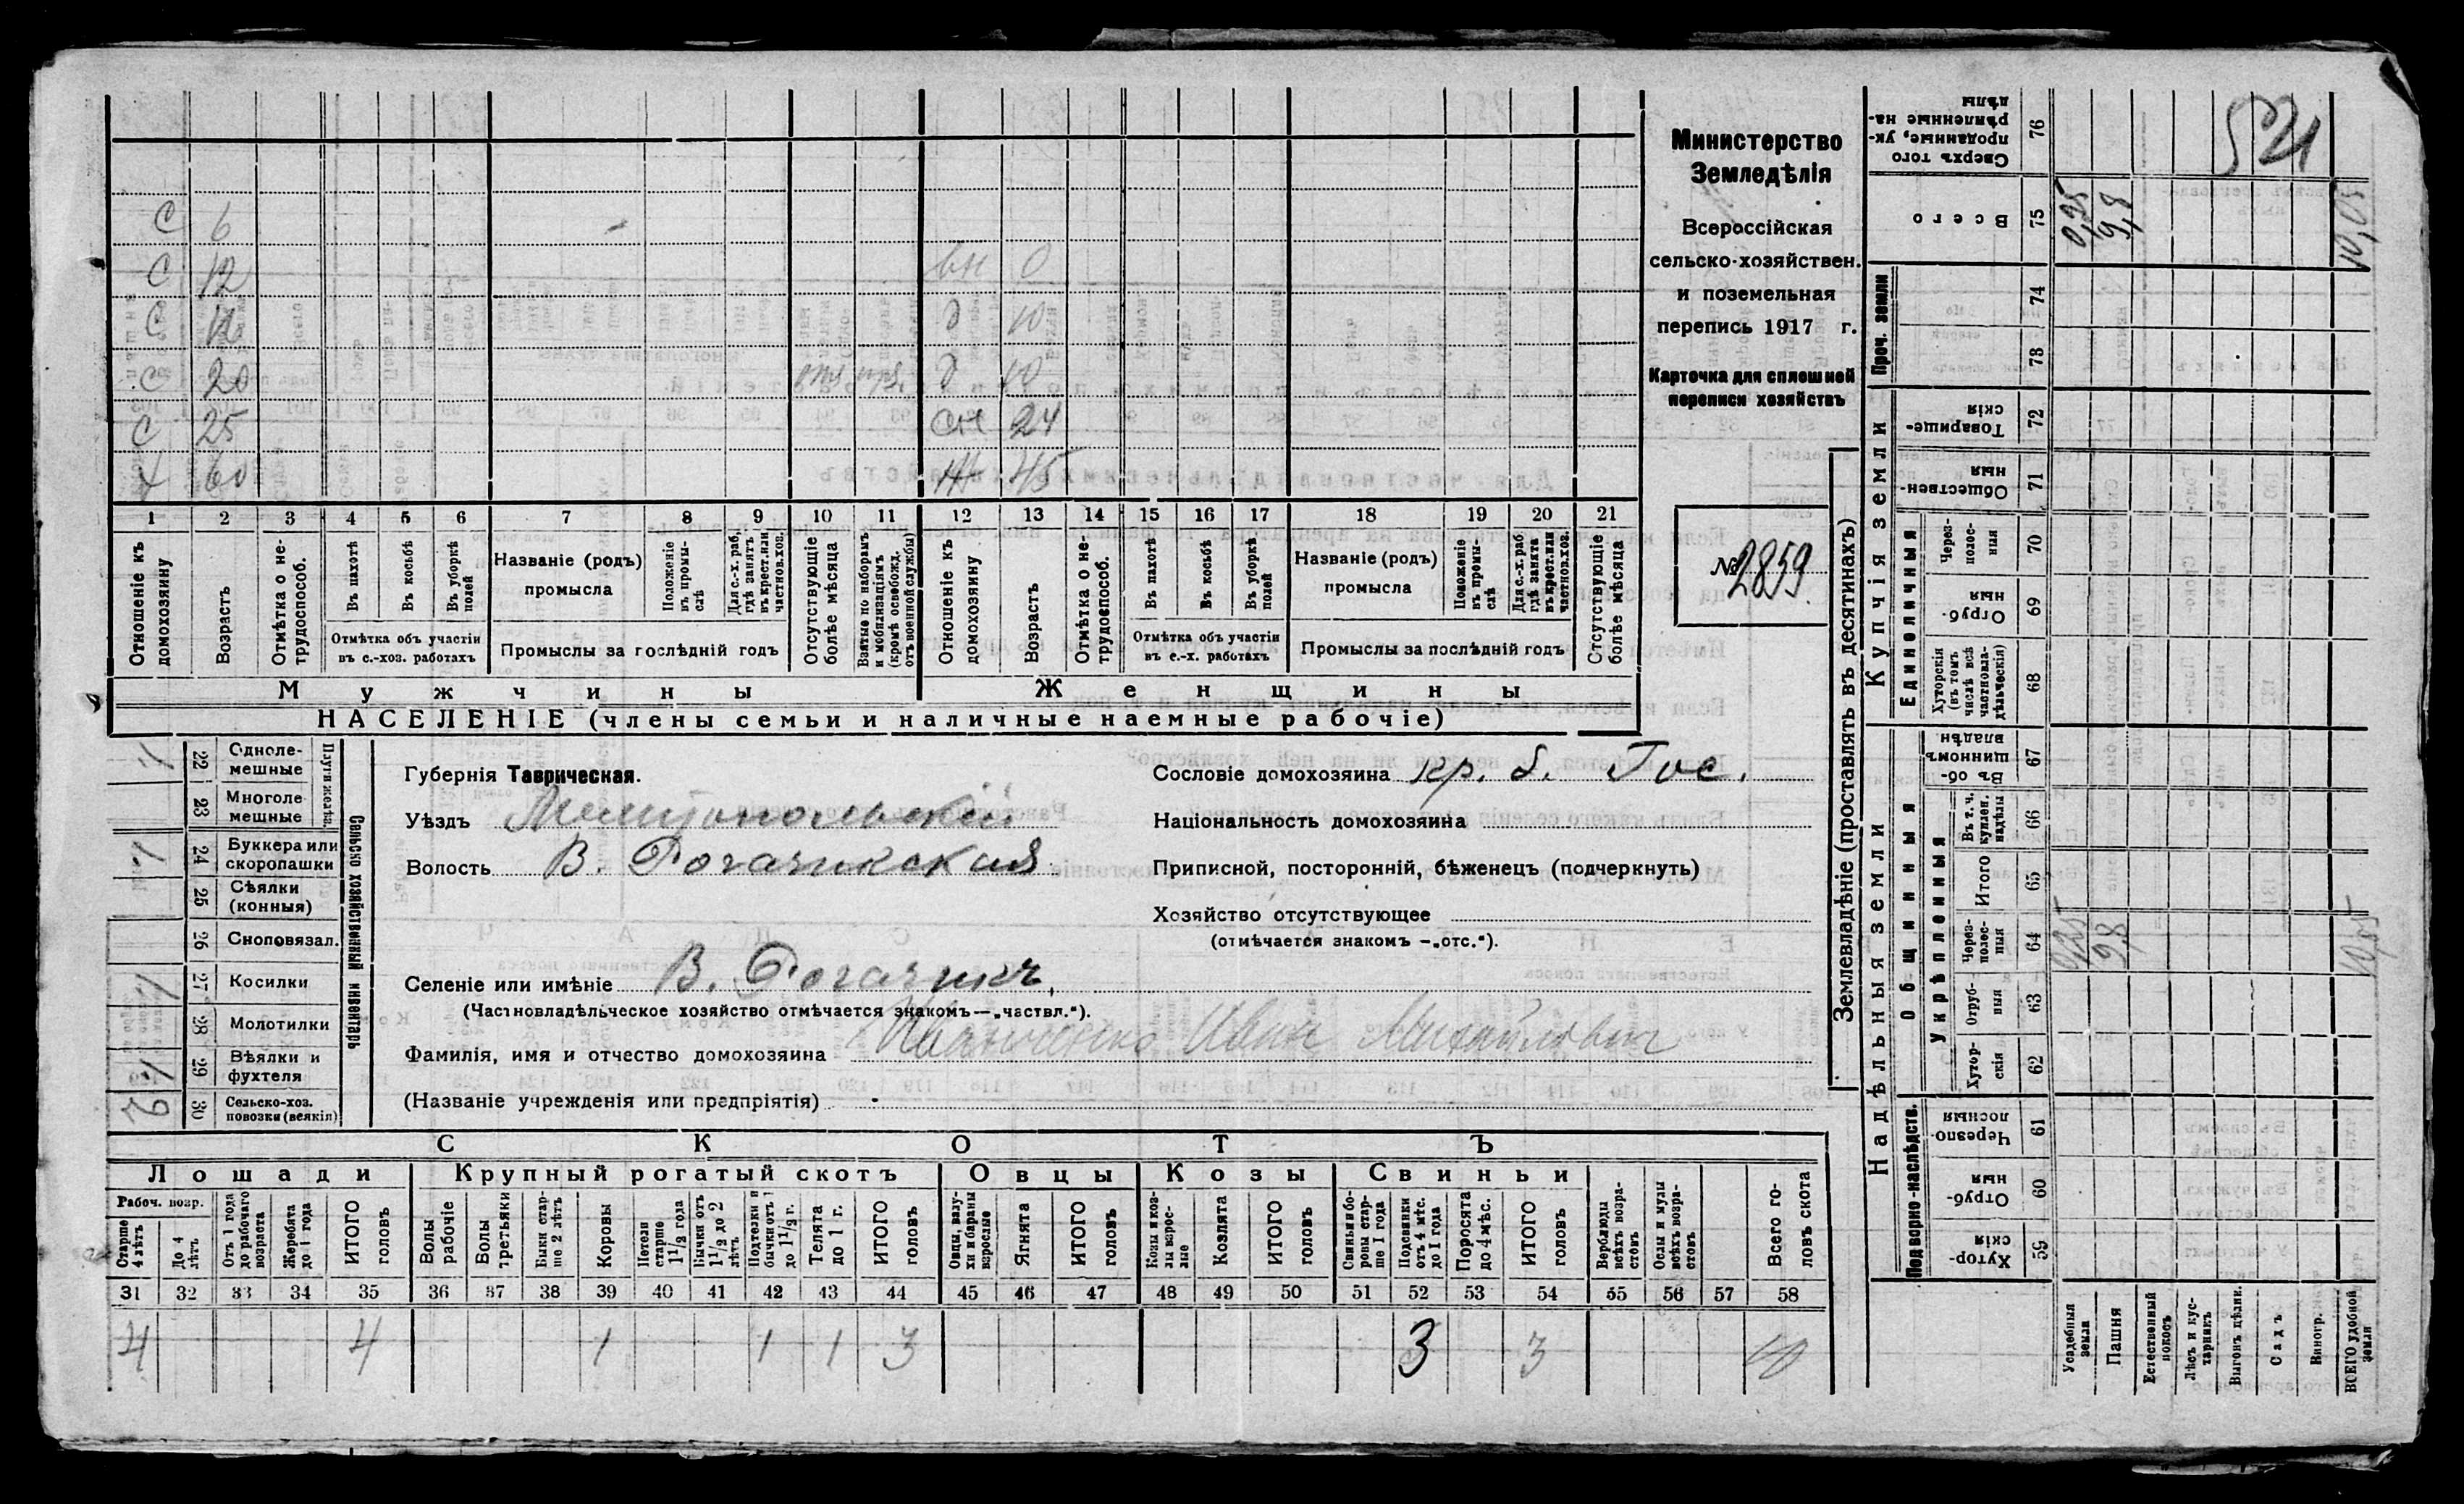 С 6
С 12 вн 0
С 12 д 10
С 20 отя отя. д 10
С 25 сн 24
х 60 ж 45
1 2 3 4 5 6 7 8 9 10 11 12 13 14 15 16 17 18 19 20 21
Отношеніе къ домохозяину
Возрастъ
Отмѣтка о не-трудоспособ.
Въ пахотѣ
Въ косьбѣ
Въ уборкѣ полей
Отмѣтка объ участіи въ с.-хоз. работахъ
Названіе (родъ) промысла
Положеніе въ промы-слѣ
Для с.-х. раб. гдѣ занятъ въ крест. или частнов. хоз.
Промыслы за послѣдній годъ
Отсутствующіе болѣе мѣсяца
Взятые по наборамъ и мобилизаціямъ (кромѣ освобожд. отъ военной службы)
Отношеніе къ домохозяину
Возрастъ
Отмѣтка о не-трудоспособ.
Въ пахотѣ
Въ косьбѣ
Въ уборкѣ полей
Отмѣтка объ участіи въ с.-х. работахъ
Названіе (родъ) промысла
Положеніе въ промы-слѣ
Для с.-х. раб. гдѣ занята въ крест. или частнов. хоз.
Промыслы за послѣдній годъ
Отсутствующіе болѣе мѣсяца
Мужчины Женщины
НАСЕЛЕНІЕ (члены семьи и наличные наемные рабочіе)
Министерство
Земледѣлія
Всероссійская
сельско-хозяйствен.
и поземельная
перепись 1917 г.
Карточка для сплошной
переписи хозяйствъ
№ 2859
Сельско хозяйственный инвентарь
Плуги желѣз.
1 22 Однолемешные
23 Многолемешные
1 24 Буккера или скоропашки
25 Сѣялки (конныя)
26 Сноповязал.
1 27 Косилки
28 Молотилки
1 29 Вѣялки и фухтеля
2 30 Сельско-хоз. повозки (всякія)
Губернія Таврическая.
Уѣздъ Мелитопольскій
Волость В. Рогачикская
Селеніе или имѣніе В. Рогачикъ,
(Частновладѣльческое хозяйство отмѣчается знакомъ—„частвл.“).
Фамилія, имя и отчество домохозяина Иваненко Иван Михайлович
(Названіе учрежденія или предпріятія)
Сословіе домохозяина кр. б. Гос.
Національность домохозяина
Приписной, посторонній, бѣженецъ (подчеркнуть)
Хозяйство отсутствующее
(отмѣчается знакомъ —„отс.“).
СКОТЪ
Лошади Крупный рогатый скотъ Овцы Козы Свиньи
Рабоч. возр.
Старше 4 лѣтъ
До 4 лѣтъ
Отъ 1 года до рабочаго возраста
Жеребята до 1 года
ИТОГО головъ
Волы рабочіе
Волы третьяки
Быки стар-ше 2 лѣтъ
Коровы
Нетели старше 1½ года
Бычки отъ 1½ до 2 лѣтъ
Подтелки и бычки отъ 1 до 1½ г.
Телята до 1 г.
ИТОГО головъ
Овцы, валу-хи и бараны взрослые
Ягнята
ИТОГО головъ
Козы и коз-лы взрос-лые
Козлята
ИТОГО головъ
Свиньи и бо-ровы стар-ше 1 года
Подсвинки отъ 4 мѣс. до 1 года
Поросята до 4 мѣс.
ИТОГО головъ
Верблюды всѣхъ возра-стовъ
Ослы и мулы всѣхъ возра-стовъ
Всего го-ловъ скота
31 32 33 34 35 36 37 38 39 40 41 42 43 44 45 46 47 48 49 50 51 52 53 54 55 56 57 58
4 4 1 1 1 3 3 3 10
Землевладѣніе (проставлять въ десятинахъ)
Надѣльныя земли Купчія земли Проч. земли
Подворно-наслѣдств.
Общинныя
Укрѣпленныя
Единоличныя
Сверхъ того проданные, ук-рѣпленные на-дѣлы 76
Всего 75
74
73
Товарище-скія 72
Обществен-ныя 71
Через-полос-ныя 70
Отруб-ныя 69
Хуторскія (въ томъ числѣ всѣ частновла-дѣльческія) 68
Въ об-щинномъ владѣн. 67
Въ т. ч. куплен. надѣлы 66
ИТОГО 65
Через-полос-ныя 64
Отруб-ныя 63
Хутор-скія 62
Черезпо-лосныя 61
Отруб-ныя 60
Хутор-скія 59
521
0,25 9,8 10,05
0,25 9,8 10,05
Усадебныя земля
Пашня
Естественный покосъ
Лѣсъ и кус-тарникъ
Выгонъ дѣлян.
Садъ
Виногр.
ВСЕГО удобной земли